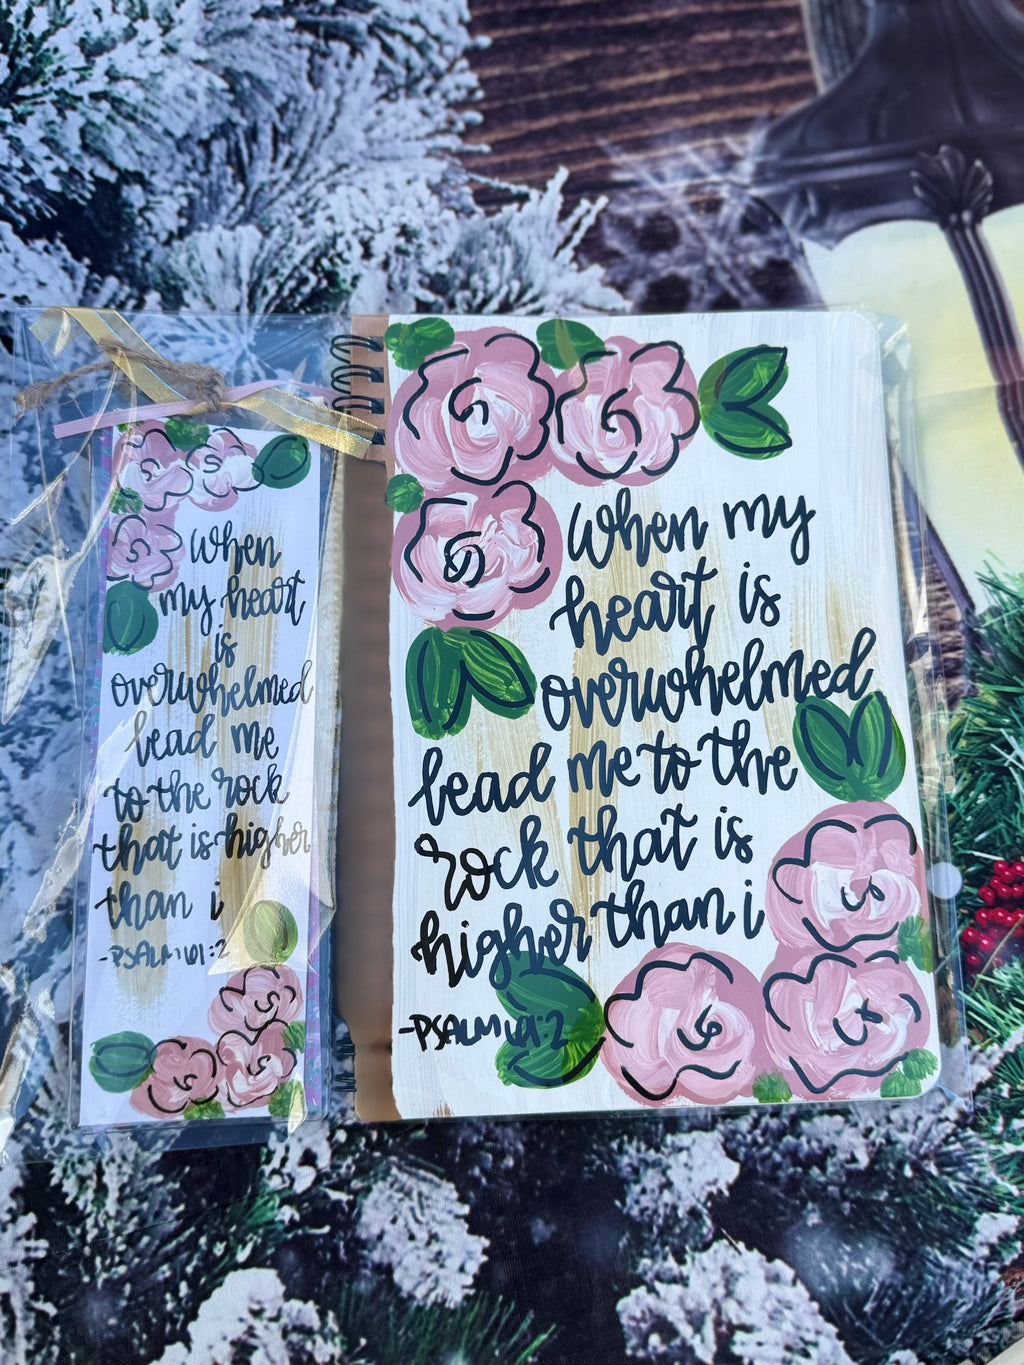 when
my heart
is
overwhelmed
lead me
to the rock
that is higher
than i
-PSALM 61:2
when my
heart is
overwhelmed
lead me to the
rock that is
higher than i
-PSALM 61:2